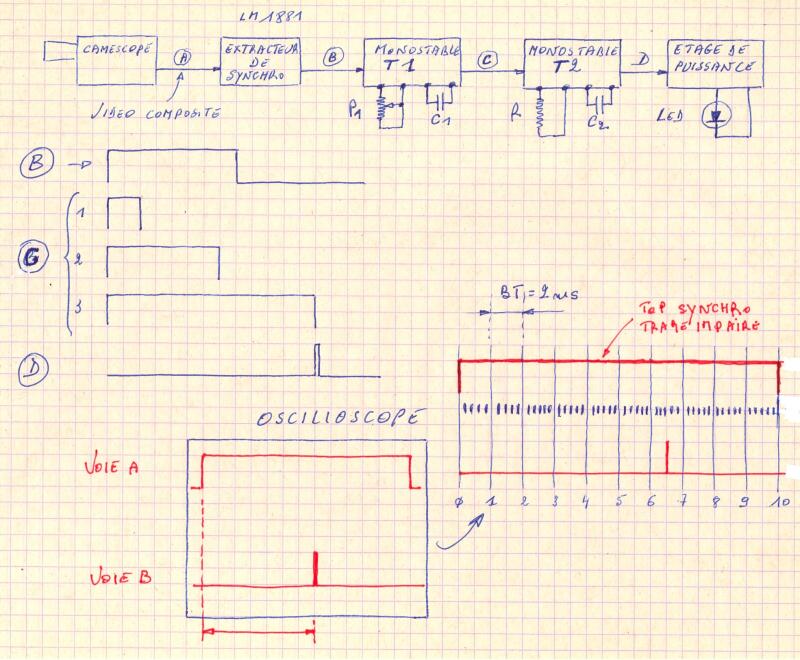 LM 1881
CAMESCOPE
A
EXTRACTEUR
DE
SYNCHRO
B
MONOSTABLE
T1
C
MONOSTABLE
T2
D
ETAGE DE
PUISSANCE
VIDEO COMPOSITE
P1
C1
R
C2
LED
B
1
C
2
3
D
BT1 = 2 ms
TOP SYNCHRO
TRAME IMPAIRE
OSCILLOSCOPE
VOIE A
VOIE B
0 1 2 3 4 5 6 7 8 9 10